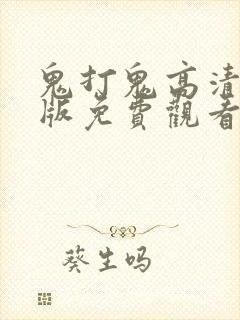 鬼打鬼高清
版免費觀看
葵生吗